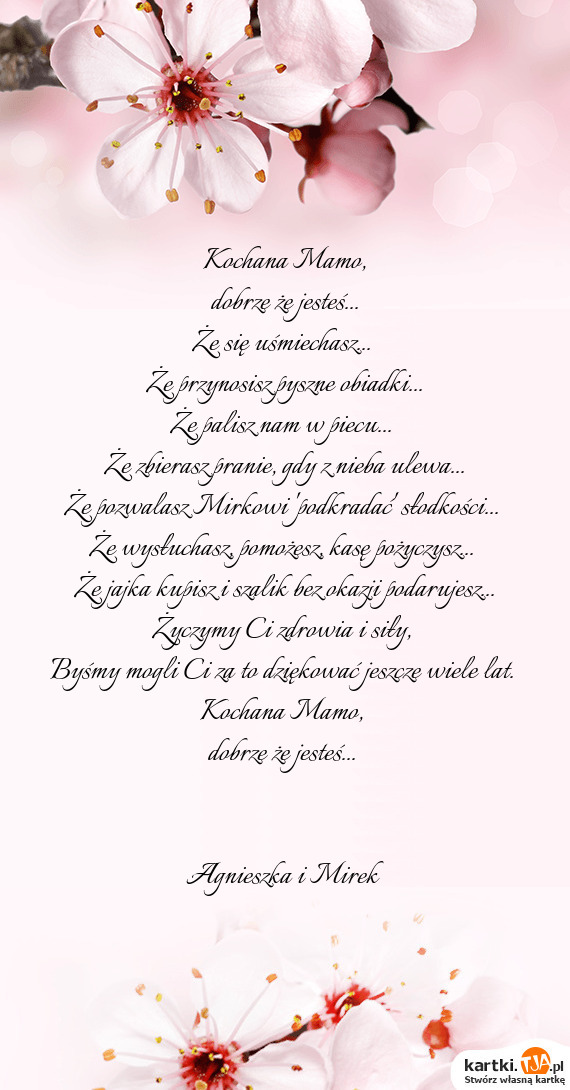 Kochana Mamo,
dobrze że jesteś...
Że się uśmiechasz...
Że przynosisz pyszne obiadki...
Że palisz nam w piecu...
Że zbierasz pranie, gdy z nieba ulewa...
Że pozwalasz Mirkowi 'podkradać' słodkości...
Że wysłuchasz, pomożesz, kasę pożyczysz...
Że jajka kupisz i szalik bez okazji podarujesz...
Życzymy Ci zdrowia i siły,
Byśmy mogli Ci za to dziękować jeszcze wiele lat.
Kochana Mamo,
dobrze że jesteś...
Agnieszka i Mirek
kartki.TJA.pl
Stwórz własną kartkę